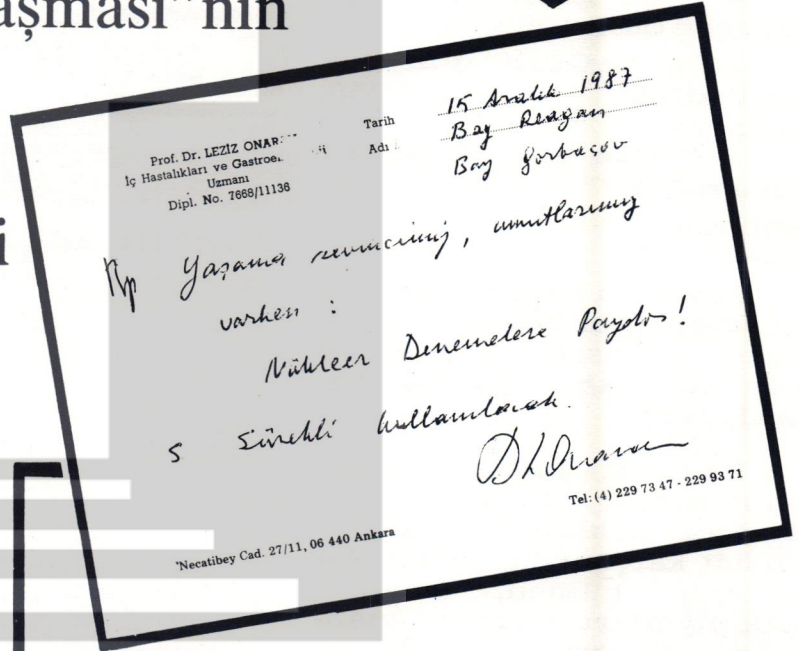 aşması"nin
i
Prof. Dr. LEZİZ ONAR
İç Hastalıkları ve Gastroe
Uzmanı
Dipl. No. 7668/11136
Tarih 15 Aralık 1987
Adı Bay Reagan
Bay Gorbaçov
Rp Yaşama sevincimiz, umutlarımız
varken :
Nükleer Denemelere Paydos!
S Sürekli kullanılacak.
Tel: (4) 229 73 47 - 229 93 71
Necatibey Cad. 27/11, 06 440 Ankara